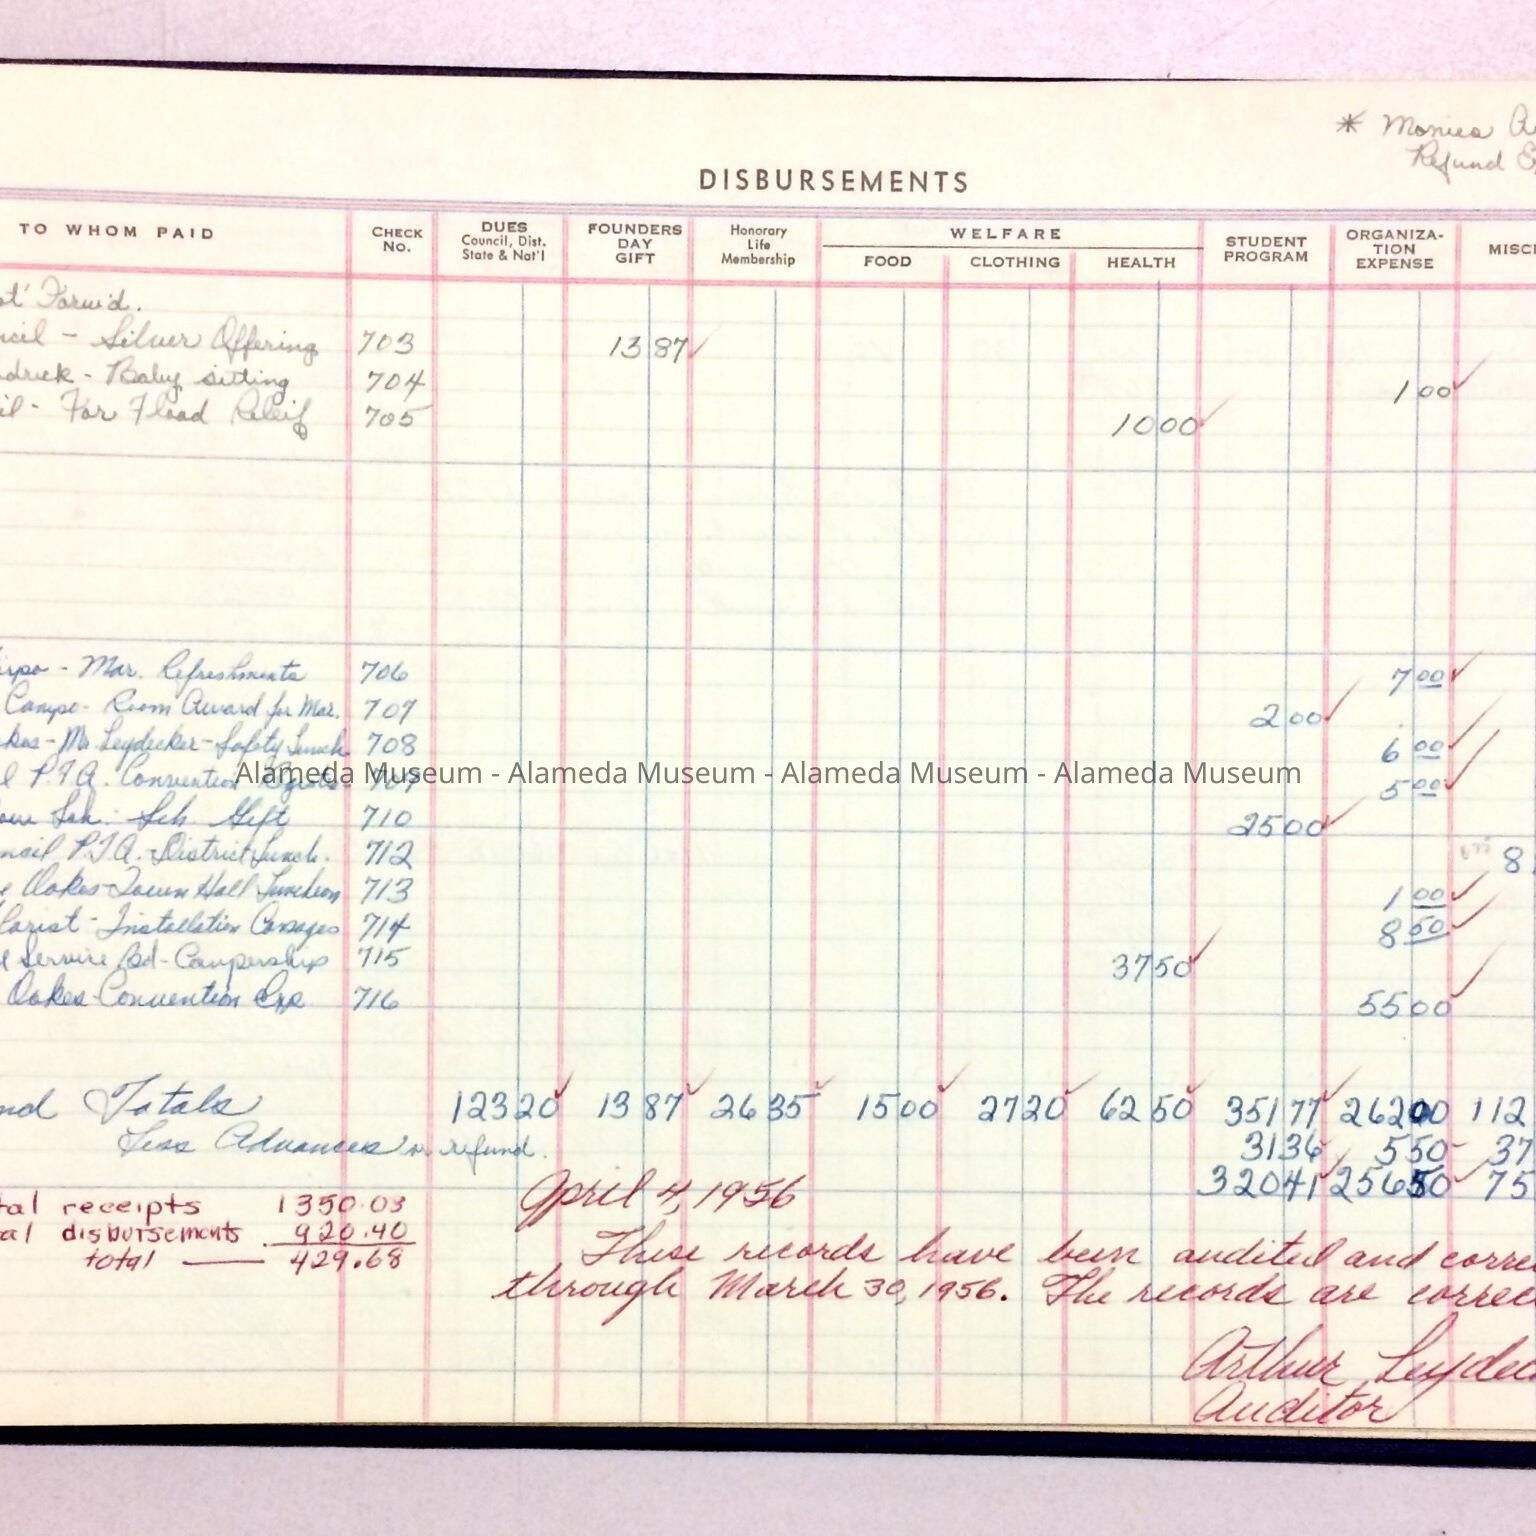 * Monica
Refund
DISBURSEMENTS
TO WHOM PAID CHECK No. DUES Council, Dist. State & Nat'l FOUNDERS DAY GIFT Honorary Life Membership WELFARE FOOD CLOTHING HEALTH STUDENT PROGRAM ORGANIZA- TION EXPENSE MISC
Forw'd.
ncil - Silver Offering 703 13 87
drick - Baby sitting 704 1 00
il - For Flood Releif 705 10 00
- Mar. Refreshments 706 7 00
Campo - Room Award for Mar. 707 2 00
kes - Mr. Leydecker - Safety Lunch 708 6 00
l P.T.A. Convention 709 5 00
Sch. Gift 710 25 00
ncil P.T.A. - District Lunch. 712 8
e Oakes - Town Hall Luncheon 713 1 00
lorist - Installation Corsages 714 8 50
e Service Bd - Campership 715 37 50
Oakes - Convention Exp. 716 55 00
nd Totals 123 20 13 87 26 35 15 00 27 20 62 50 351 77 262 00 112
Less Advances or refund. 31 36 5 50 37
320 41 256 50 75
tal receipts 1350.03
al disbursements 920.40
total — 429.68
April 4, 1956
These records have been audited and corre
through March 30, 1956. The records are correc
Arthur Leydec
Auditor
Alameda Museum - Alameda Museum - Alameda Museum - Alameda Museum